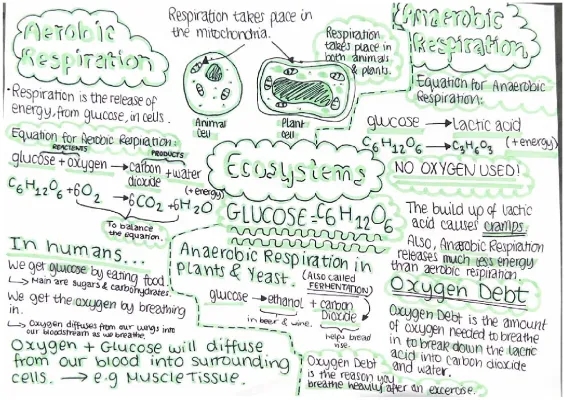 Aerobic
Respiration
•Respiration is the release of
energy, from glucose, in cells.
Equation for Aerobic Respiration:
REACTANTS
PRODUCTS
glucose + oxygen → carbon + water
dioxide
(+energy)
C6H12O6 + 6O2 → 6CO2 + 6H2O
To balance
the equation.
In humans...
We get glucose by eating food.
↳ Main are sugars & carbohydrates.
We get the oxygen by breathing
in.
↳ Oxygen diffuses from our lungs into
our bloodstream as we breathe.
Oxygen + Glucose will diffuse
from our blood into surrounding
cells. → e.g Muscle Tissue.
Respiration takes place in
the mitochondria.
Animal
cell
Plant
cell
Respiration
takes place in
both animals
& plants.
Ecosystems
GLUCOSE = C6H12O6
Anaerobic Respiration in
Plants & Yeast.
(Also called
FERMENTATION)
glucose → ethanol + carbon
Dioxide
in beer & wine.
Helps bread
rise.
Oxygen Debt
is the reason you
breathe heavily after an excerose.
Anaerobic
Respiration
Equation for Anaerobic
Respiration:
glucose → Lactic acid
(+energy)
C6H12O6 → C3H6O3
NO OXYGEN USED!
The build up of lactic
acid causes cramps.
Also, Anaerobic Respiration
releases much less energy
than aerobic respiration
Oxygen Debt
Oxygen Debt is the amount
of oxygen needed to breathe
in to break down the lactic
acid into carbon dioxide
and water.